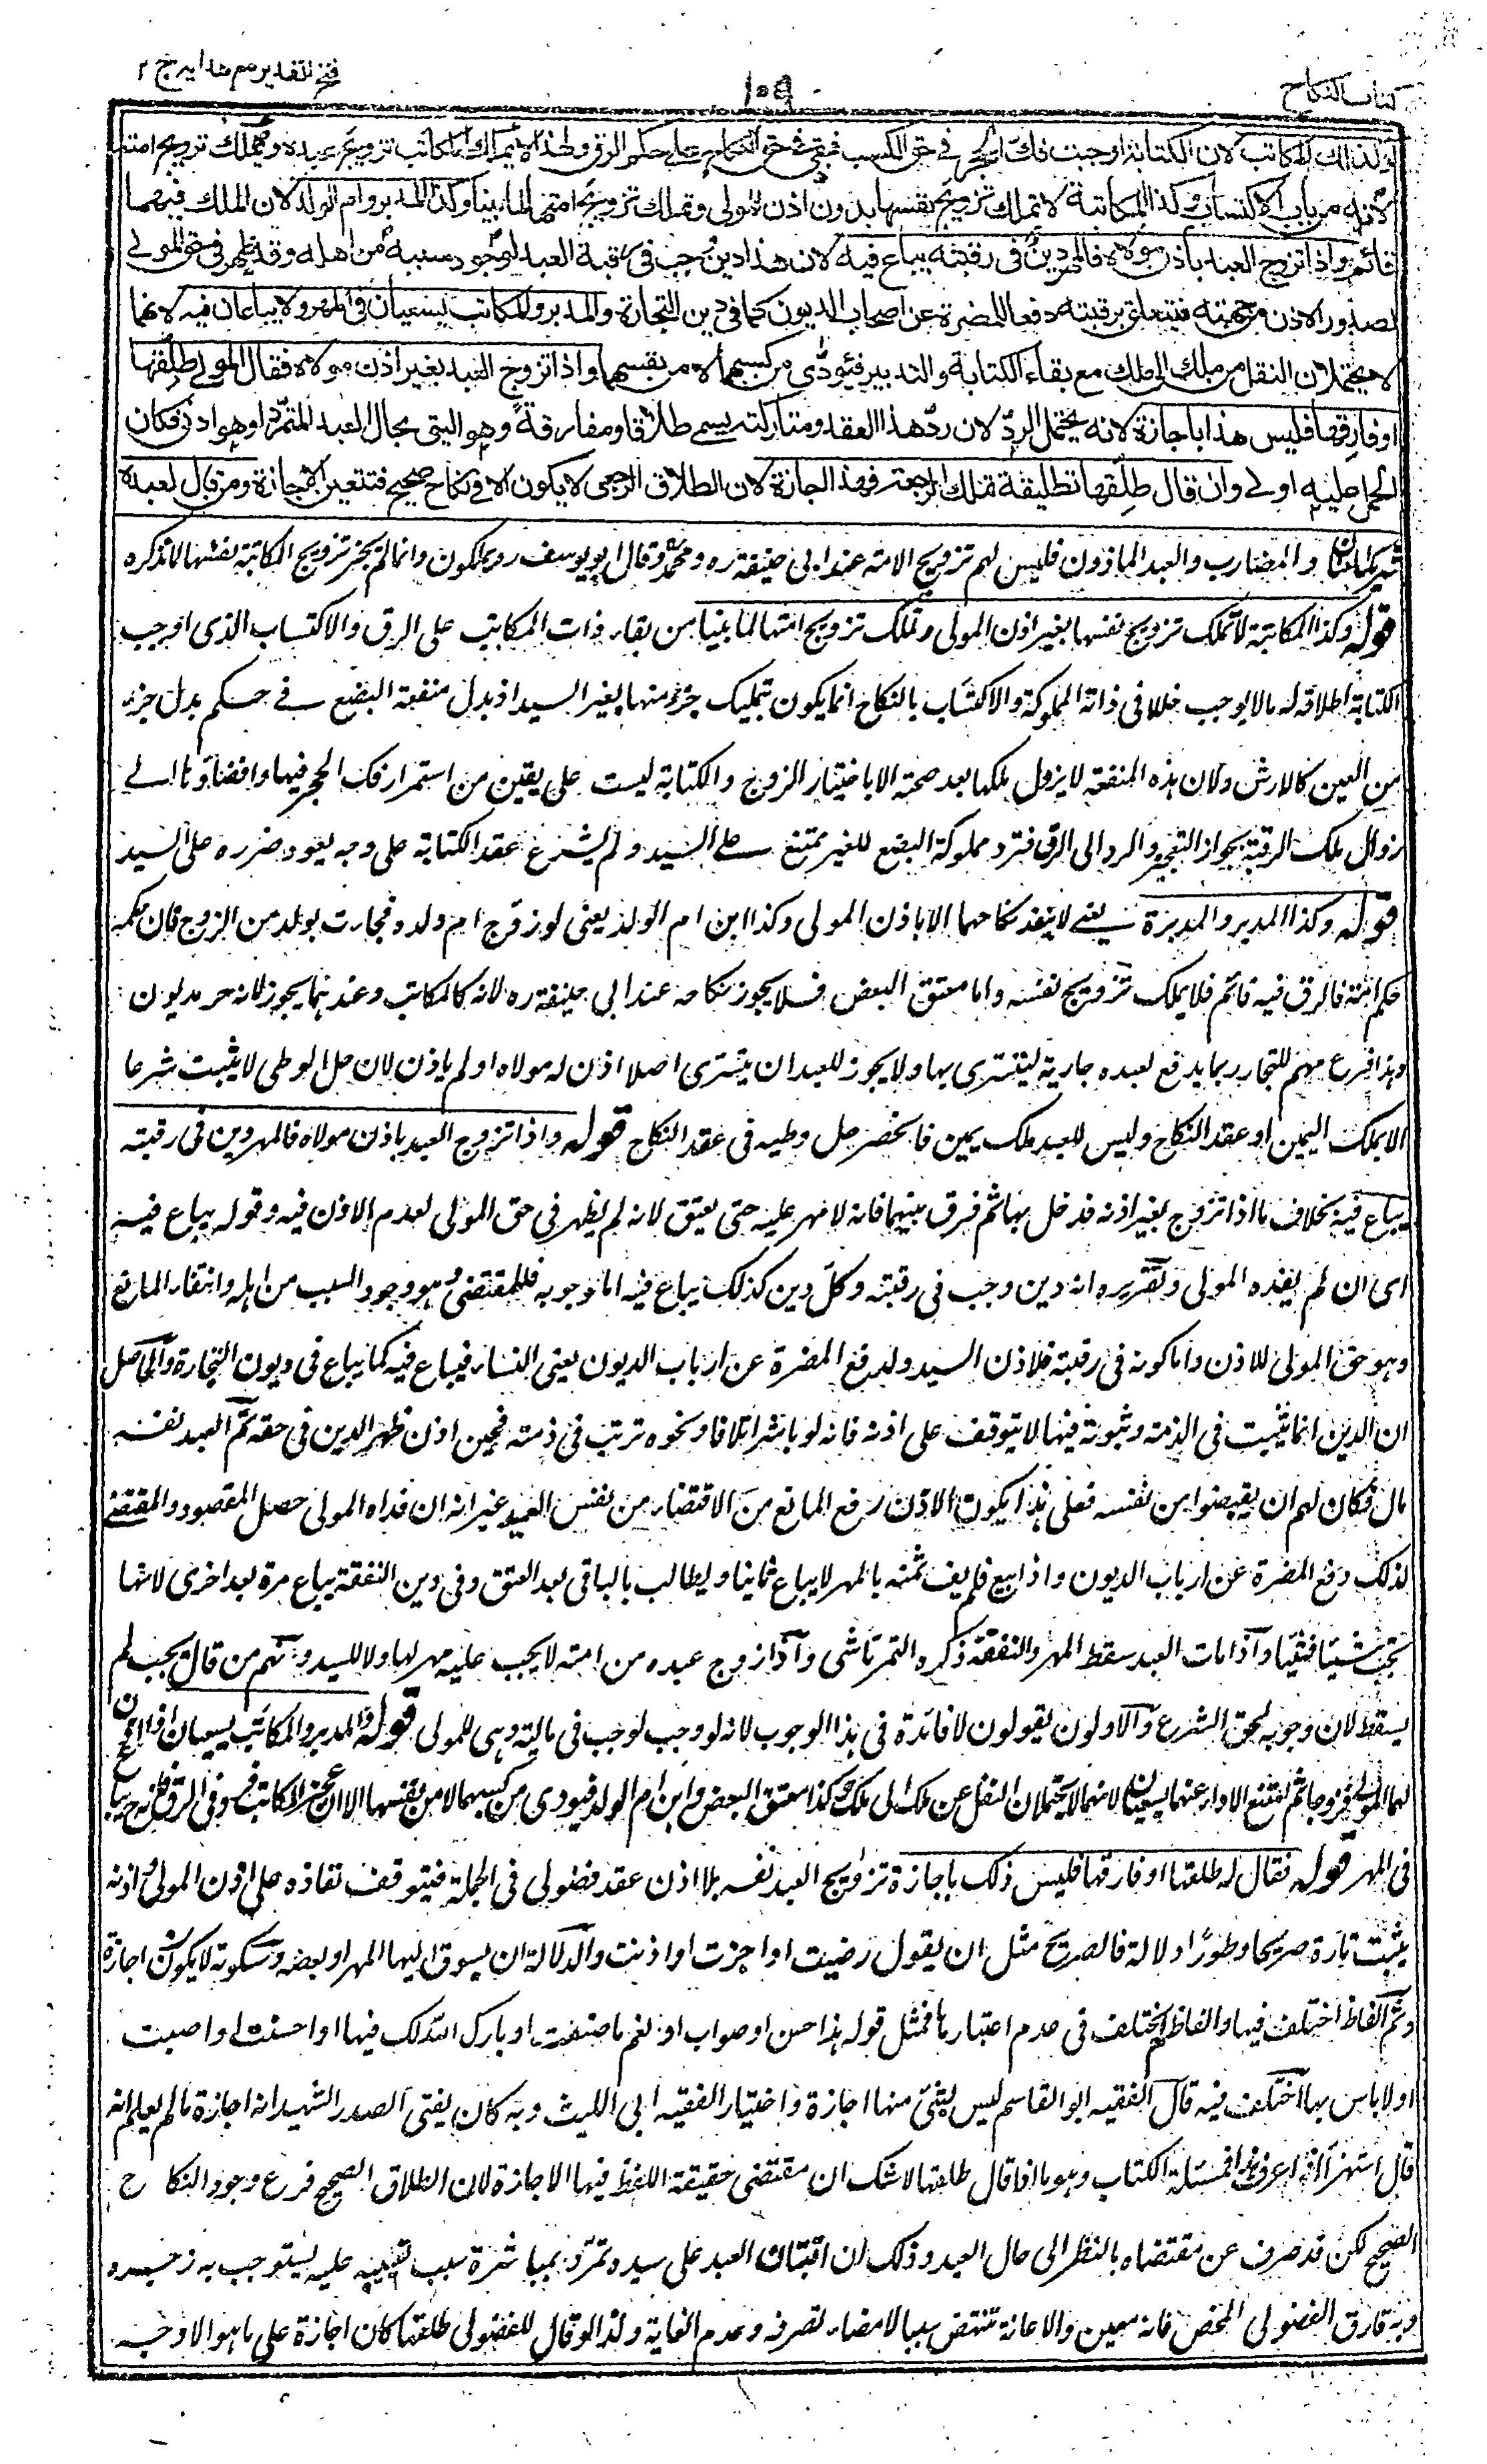 كتاب النكاح
١٠٩
فتح القدير مع هدايه ج ٢
وكذلك المكاتب لان الكتابة اوجبت فك الحجر في حق الكسب فبقي في حق النكاح على حكم الرق ولهذا لا يملك المكاتب تزويج عبده ويملك تزويج امته
لانه من باب الاكتساب وكذا المكاتبة لا تملك تزويج نفسها بدون اذن المولى وتملك تزويج امتها لما بينا وكذا المدبر وام الولد لان الملك فيهما
قائم واذا تزوج العبد باذن مولاه فالمهر دين في رقبته يباع فيه لان هذا دين وجب في رقبة العبد لوجود سببه من اهله وقد ظهر في حق المولى
لصدور الاذن من جهته فيتعلق برقبته دفعا للمضرة عن اصحاب الديون كما في دين التجارة والمدبر والمكاتب يسعيان في المهر ولا يباعان فيه لانهما
لا يحتملان النقل من ملك الى ملك مع بقاء الكتابة والتدبير فيؤدى من كسبهما لا من نفسهما واذا تزوج العبد بغير اذن مولاه فقال المولى طلقها
او فارقها فليس هذا باجازة لانه يحتمل الرد لان رد هذا العقد ومتاركته يسمى طلاقا ومفارقة وهو اليق بحال العبد المتمرد او هو ادنى فكان
الحمل عليه اولى وان قال طلقها تطليقة تملك الرجعة فهذا اجازة لان الطلاق الرجعى لا يكون الا في نكاح صحيح فتتعين الاجازة ومن قال لعبده
شريكا عنان والمضارب والعبد الماذون فليس لهم تزويج الامة عند ابى حنيفة ره ومحمد وقال ابو يوسف ره يملكون وانما لم يجز تزويج المكاتبة نفسها لما نذكره
قوله وكذا المكاتبة لا تملك تزويج نفسها بغير اذن المولى وتملك تزويج امتها لما بينا من بقاء ذات المكاتب على الرق والاكتساب الذى اوجب
الكتابة اطلاقه له مالا يوجب خللا فى ذاته المملوكة والاكتساب بالنكاح انما يكون بتمليك جزء منها لغير السيد اذ بدل منفعة البضع فى حكم بدل جزء
من العين كالارش ولان هذه المنفعة لا يزول ملكها بعد صحته الا باختيار الزوج والكتابة ليست على يقين من استمرار فك الحجر فيها وافضاؤها الى
زوال ملك الرقبة بجواز التعجيز والرد الى الرق فترد مملوكة البضع للغير يمتنع على السيد ولم يشرع عقد الكتابة على وجه يعود ضرره على السيد
قوله وكذا المدبر والمدبرة يعنى لا ينفذ نكاحهما الا باذن المولى وكذا ابن ام الولد يعنى لو زوج ام ولده فجاءت بولد من الزوج فان حكمه
حكم امه فالرق فيه قائم فلا يملك تزويج نفسه واما معتق البعض فلا يجوز نكاحه عند ابى حنيفة ره لانه كالمكاتب وعندهما يجوز لانه حر مديون
وهذا فرع مهم للتجار ربما يدفع لعبده جارية ليتسرى بها ولا يجوز للعبد ان يتسرى اصلا اذن له مولاه او لم ياذن لان حل الوطى لا يثبت شرعا
الا بملك اليمين او عقد النكاح وليس للعبد ملك يمين فانحصر حل وطيه فى عقد النكاح قوله واذا تزوج العبد باذن مولاه فالمهر دين فى رقبته
يباع فيه بخلاف ما اذا تزوج بغير اذنه فدخل بها ثم فرق بينهما فانه لا مهر عليه حتى يعتق لانه لم يظهر فى حق المولى لعدم الاذن فيه وقوله يباع فيه
اى ان لم يفده المولى وتقريره انه دين وجب فى رقبته وكل دين كذلك يباع فيه اما وجوبه فللمقتضى وهو وجود السبب من اهله وانتفاء المانع
وهو حق المولى للاذن واما كونه فى رقبته فلاذن السيد ولدفع المضرة عن ارباب الديون يعنى النساء فيباع فيه كما يباع فى ديون التجارة والحاصل
ان الدين انما يثبت فى الذمة وثبوته فيها لا يتوقف على اذنه فانه لو باشر اتلافا ونحوه ترتب فى ذمته فحين اذن ظهر الدين فى حقه ثم العبد نفسه
مال فكان لهم ان يقبضوا من نفسه فعلى هذا يكون الاذن رفع المانع من الاقتضاء من نفس العبد غير انه ان فداه المولى حصل المقصود والمقتضى
لذلك دفع المضرة عن ارباب الديون واذا بيع فلم يف ثمنه بالمهر لا يباع ثانيا ويطالب بالباقى بعد العتق وفى دين النفقة يباع مرة بعد اخرى لانها
تجب شيئا فشيئا واذا مات العبد سقط المهر والنفقة ذكره التمرتاشى واذا زوج عبده من امته لا يجب عليه مهر لها ولا للسيد ومنهم من قال يجب ثم
يسقط لان وجوبه لحق الشرع والاولون يقولون لا فائدة فى هذا الوجوب لانه لو وجب لوجب فى ماليته وهى للمولى قوله والمدبر والمكاتب يسعيان اذا اذن
لهما المولى فزوجا ثم امتنع الاداء عنهما يسعيان لانهما لا يحتملان النقل عن ملك الى ملك وكذا معتق البعض وابن ام الولد فيودى من كسبهما لا من نفسهما الا اذا عجز المكاتب فرد فى الرق فانه ح يباع
فى المهر قوله فقال له طلقها او فارقها فليس ذلك باجازة تزويج العبد نفسه بلا اذن عقد فضولى فى الجملة فيتوقف نفاذه على اذن المولى واذنه
يثبت تارة صريحا وطورا دلالة فالصريح مثل ان يقول رضيت او اجزت او اذنت والدلالة ان يسوق اليها المهر او بعضه وسكوته لا يكون اجازة
وثم الفاظ اختلف فيها والفاظ لم يختلف فى عدم اعتبارها فمثل قوله هذا حسن او صواب او نعم ما صنعت او بارك الله لك فيها او احسنت او اصبت
او لا باس بها اختلف فيه قال الفقيه ابو القاسم ليس شئ منها اجازة واختيار الفقيه ابى الليث وبه كان يفتى الصدر الشهيد انه اجازة ما لم يعلم انه
قال استهزاء اذا عرف هذا فمسئلة الكتاب وهو ما اذا قال طلقها لا شك ان مقتضى حقيقة اللفظ فيها الاجازة لان الطلاق الصحيح فرع وجود النكاح
الصحيح لكن قد صرف عن مقتضاه بالنظر الى حال العبد وذلك ان افتيات العبد على سيده وتمرد بمباشرة سبب تعييبه عليه يستوجب به زجره
وبه فارق الفضولى المحض فانه معين والاعانة تنتهض سببا لامضاء تصرفه وعدم الغايه ولذا لو قال للفضولى طلقها كان اجازة على ما هو الاوجه